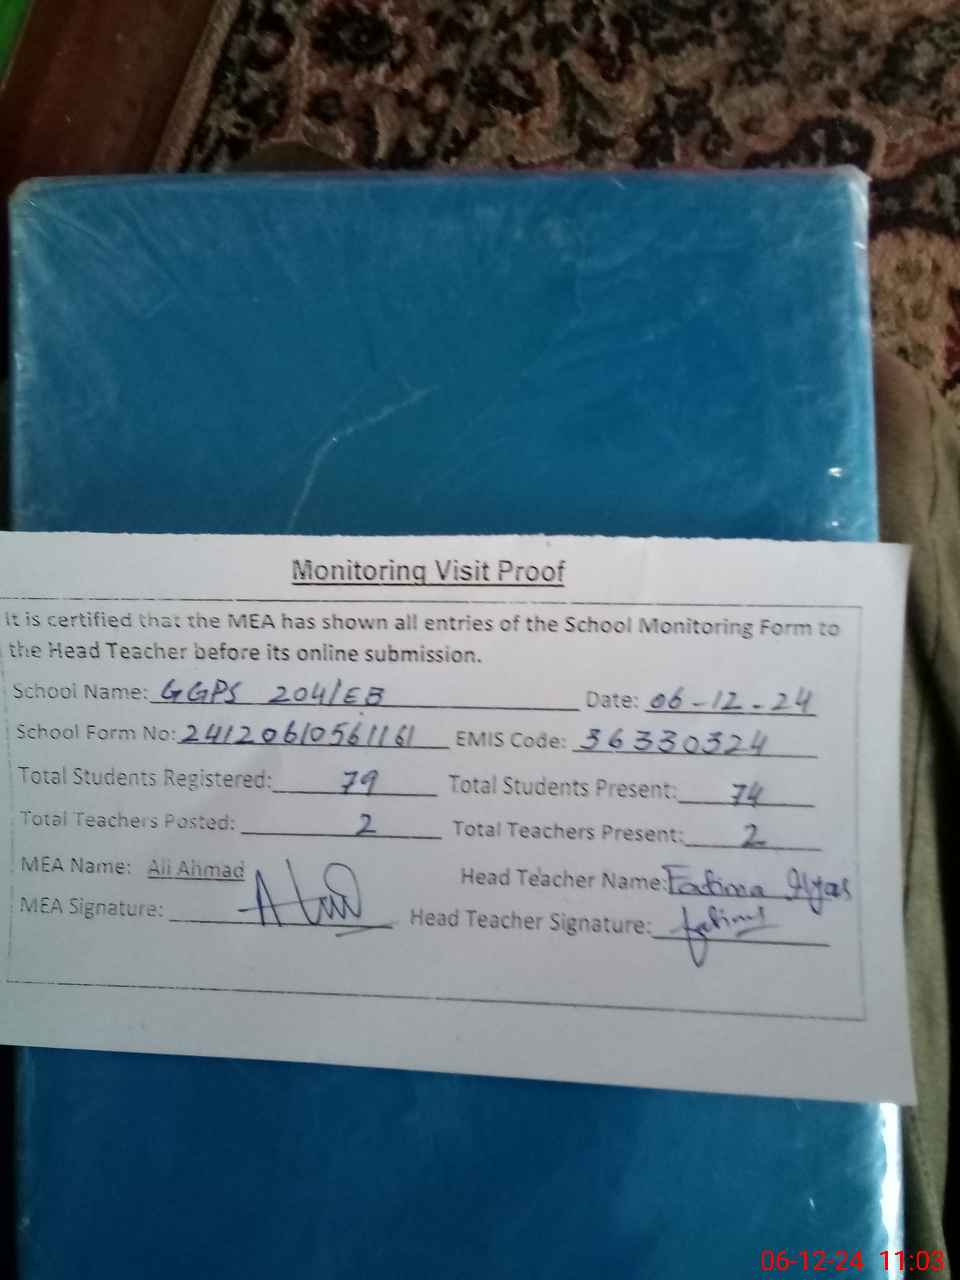 Monitoring Visit Proof
It is certified that the MEA has shown all entries of the School Monitoring Form to
the Head Teacher before its online submission.
School Name: GGPS 204/EB Date: 06-12-24
School Form No: 24120610561161 EMIS Code: 36330324
Total Students Registered: 79 Total Students Present: 74
Total Teachers Posted: 2 Total Teachers Present: 2
MEA Name: Ali Ahmad Head Teacher Name: Fatima Ilyas
MEA Signature: Head Teacher Signature: fatima
06-12-24 11:03